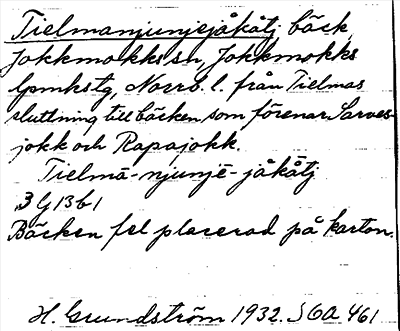 Tielmanjunjejåkåtj, bäck,
Jokkmokks sn, Jokkmokks
lpmkstg, Norrb. l. från Tielmas
sluttning till bäcken som förenar Sarves-
jokk och Rapajokk.
Tielmā-njunjē-jåkåtj
3 G 13 b 1
Bäcken fel placerad på kartan.
H. Grundström 1932. SOA 461